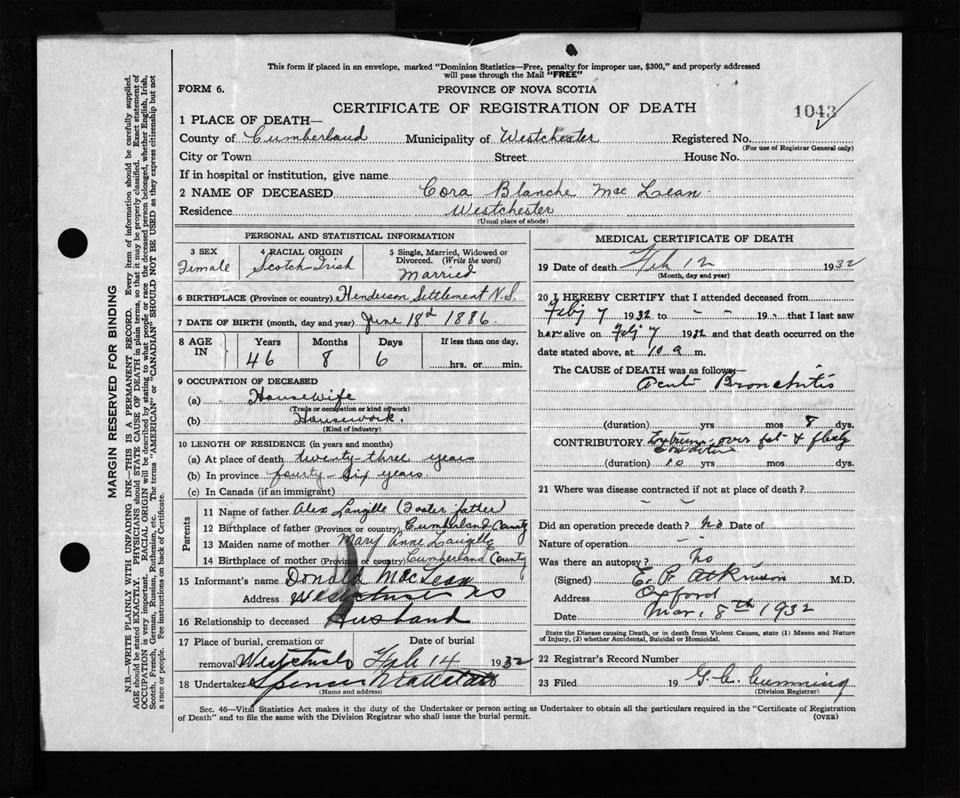 Feb
This form if placed in an envelope, marked "Dominion Statistics—Free, penalty for improper use, $300," and properly addressed
will pass through the Mail "FREE"
FORM 6.
PROVINCE OF NOVA SCOTIA
CERTIFICATE OF REGISTRATION OF DEATH
1043
1 PLACE OF DEATH—
County of Cumberland Municipality of Westchester Registered No.
(For use of Registrar General only)
City or Town Street House No.
If in hospital or institution, give name
2 NAME OF DECEASED Cora Blanche Mac Lean
Residence Westchester
(Usual place of abode)
PERSONAL AND STATISTICAL INFORMATION
3 SEX
Female
4 RACIAL ORIGIN
Scotch Irish
5 Single, Married, Widowed or
Divorced. (Write the word)
Married
6 BIRTHPLACE (Province or country) Henderson Settlement N.S.
7 DATE OF BIRTH (month, day and year) June 18d 1886
8 AGE IN
Years Months Days If less than one day,
46 8 6 hrs. or min.
9 OCCUPATION OF DECEASED
(a) Housewife
(Trade or occupation or kind of work)
(b) Housework.
(Kind of industry)
10 LENGTH OF RESIDENCE (in years and months)
(a) At place of death twenty-three years
(b) In province fourty-six years
(c) In Canada (if an immigrant)
Parents
11 Name of father Alex Langille (Foster father)
12 Birthplace of father (Province or country) Cumberland County
13 Maiden name of mother Mary Anne Langille
14 Birthplace of mother (Province or country) Cumberland County
15 Informant's name Donald MacLean
Address Westchester NS
16 Relationship to deceased Husband
17 Place of burial, cremation or Date of burial
removal Feb 14 1932
18 Undertaker Spencer
(Name and address)
MEDICAL CERTIFICATE OF DEATH
19 Date of death Feb 12 1932
(Month, day and year)
20 I HEREBY CERTIFY that I attended deceased from
Feby 7 1932 to - - 19 that I last saw
her alive on Feby 7 1932 and that death occurred on the
date stated above, at 10 a m.
The CAUSE of DEATH was as follows:
Acute Bronchitis
(duration) yrs mos 8 dys.
CONTRIBUTORY Extreme over fat & flesty
condition
(duration) 10 yrs mos dys.
21 Where was disease contracted if not at place of death?
Did an operation precede death? No Date of
Nature of operation - -
Was there an autopsy? No
(Signed) E. R. Atkinson M.D.
Address Oxford
Date Mar. 8th 1932
State the Disease causing Death, or in death from Violent Causes, state (1) Means and Nature
of Injury, (2) whether Accidental, Suicidal or Homicidal.
22 Registrar's Record Number
23 Filed 19 G. C. Cumming
(Division Registrar)
Sec. 46—Vital Statistics Act makes it the duty of the Undertaker or person acting as Undertaker to obtain all the particulars required in the "Certificate of Registration
of Death" and to file the same with the Division Registrar who shall issue the burial permit.
(OVER)
MARGIN RESERVED FOR BINDING
N.B.—WRITE PLAINLY WITH UNFADING INK—THIS IS A PERMANENT RECORD. Every item of information should be carefully supplied.
AGE should be stated EXACTLY. PHYSICIANS should STATE CAUSE OF DEATH in plain terms, so that it may be properly classified. Exact statement of
OCCUPATION is very important. RACIAL ORIGIN will be described by stating to what people or race the deceased person belonged, whether English, Irish,
Scotch, French, German, Russian, Ruthenian, etc. The terms "AMERICAN" or "CANADIAN" SHOULD NOT BE USED as they express citizenship but not
a race or people. See instructions on back of Certificate.